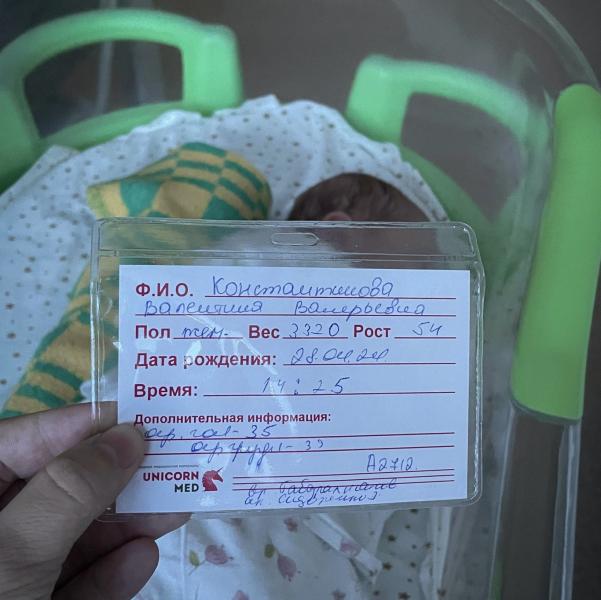 Ф.И.О. Константинова
Валентина Валерьевна
Пол жен. Вес 3320 Рост 54
Дата рождения: 28.04.24
Время: 14:25
Дополнительная информация:
окр. гол - 35
окр груди - 33
A2712.
UNICORN
MED